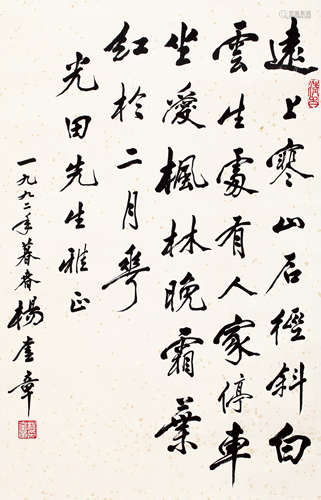 遠上寒山石徑斜白
雲生處有人家停車
坐愛楓林晚霜葉
紅於二月華
光田先生雅正
一九九二年暮春楊奎章